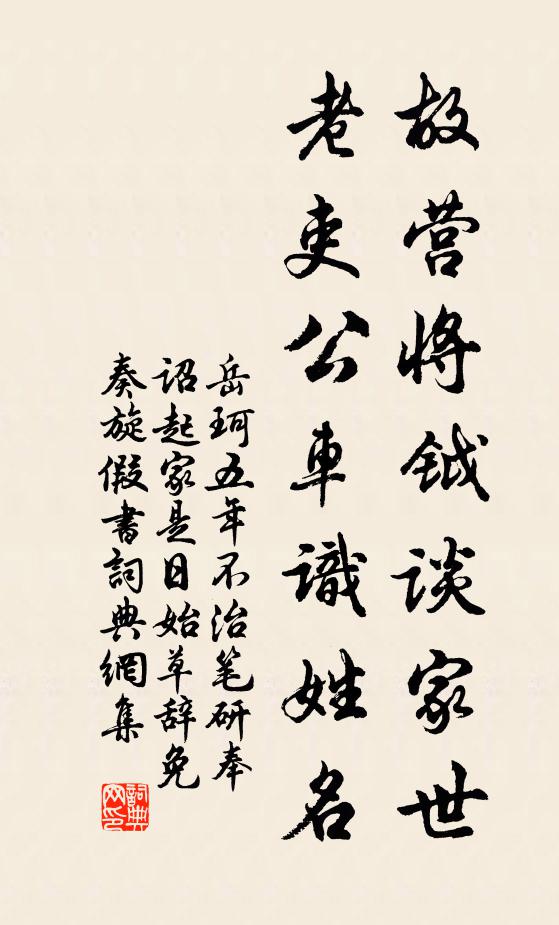 故营将钺谈家世
老吏公車識姓名
岳珂五年不治笔研奉
诏起家是日始草辞免
奏旋假書詞典網集
詞典网印